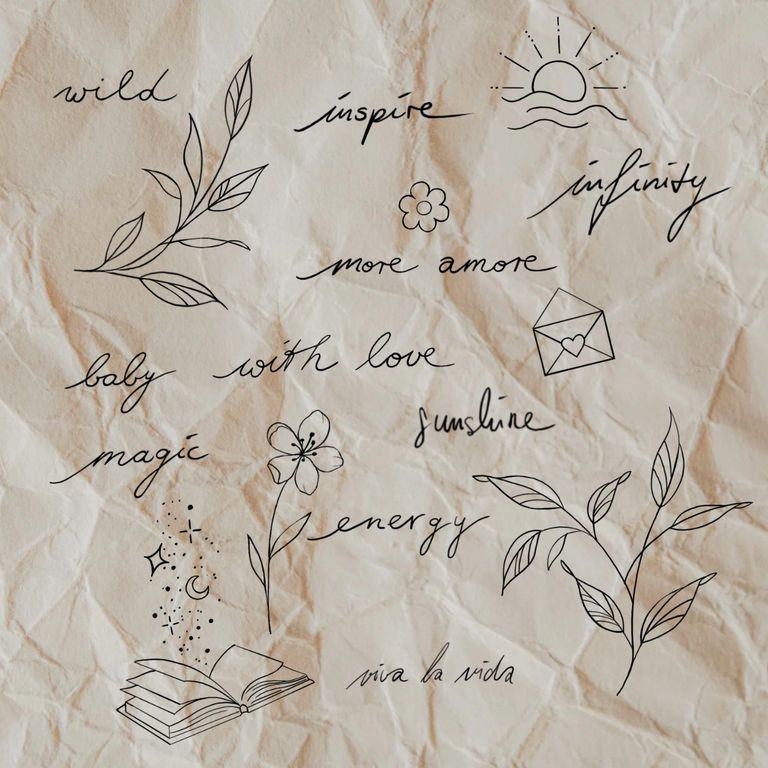 wild
inspire
infinity
more amore
baby
with love
sunshine
magic
energy
viva la vida